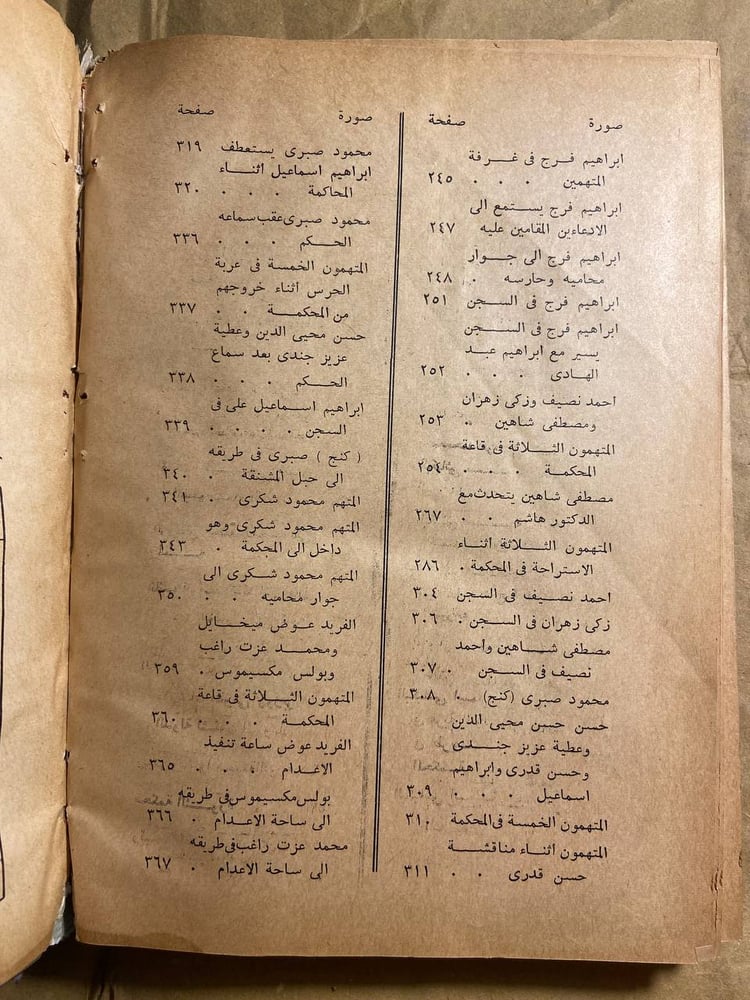 صورة صفحة
ابراهيم فرج فى غرفة
المتهمين . . . ٢٤٥
ابراهيم فرج يستمع الى
الادعاءين المقامين عليه ٢٤٧
ابراهيم فرج الى جوار
محاميه وحارسه . ٢٤٨
ابراهيم فرج فى السجن ٢٥١
ابراهيم فرج فى السجن
يسير مع ابراهيم عبد
الهادى . . . ٢٥٢
احمد نصيف وزكى زهران
ومصطفى شاهين .. ٢٥٣
المتهمون الثلاثة فى قاعة
المحكمة . . . ٢٥٤
مصطفى شاهين يتحدث مع
الدكتور هاشم . . ٢٦٧
المتهمون الثلاثة أثناء
الاستراحة فى المحكمة . ٢٨٦
احمد نصيف فى السجن ٣٠٤
زكى زهران فى السجن . ٣٠٦
مصطفى شاهين واحمد
نصيف فى السجن . ٣٠٧
محمود صبرى (كنج) . ٣٠٨
حسن حسن محيى الدين
وعطية عزيز جندى
وحسن قدرى وابراهيم
اسماعيل . . . ٣٠٩
المتهمون الخمسة فى المحكمة ٣١٠
المتهمون اثناء مناقشة
حسن قدرى . . ٣١١
صورة صفحة
محمود صبرى يستعطف ٣١٩
ابراهيم اسماعيل اثناء
المحاكمة . . . ٣٢٠
محمود صبرى عقب سماعه
الحكم . . . ٣٣٦
المتهمون الخمسة فى عربة
الحرس أثناء خروجهم
من المحكمة . . ٣٣٧
حسن محيى الدين وعطية
عزيز جندى بعد سماع
الحكم . . . ٣٣٨
ابراهيم اسماعيل على فى
السجن . . . . ٣٣٩
( كنج ) صبرى فى طريقه
الى حبل المشنقة . ٣٤٠
المتهم محمود شكرى . . ٣٤١
المتهم محمود شكرى وهو
داخل الى المحكمة . ٣٤٣
المتهم محمود شكرى الى
جوار محاميه . . ٣٥٠
الفريد عوض ميخائيل
ومحمد عزت راغب
وبولس مكسيموس . ٣٥٩
المتهمون الثلاثة فى قاعة
المحكمة . . . ٣٦٠
الفريد عوض ساعة تنفيذ
الاعدام . . . ٣٦٥
بولس مكسيموس فى طريقه
الى ساحة الاعدام . ٣٦٦
محمد عزت راغب فى طريقه
الى ساحة الاعدام . ٣٦٧